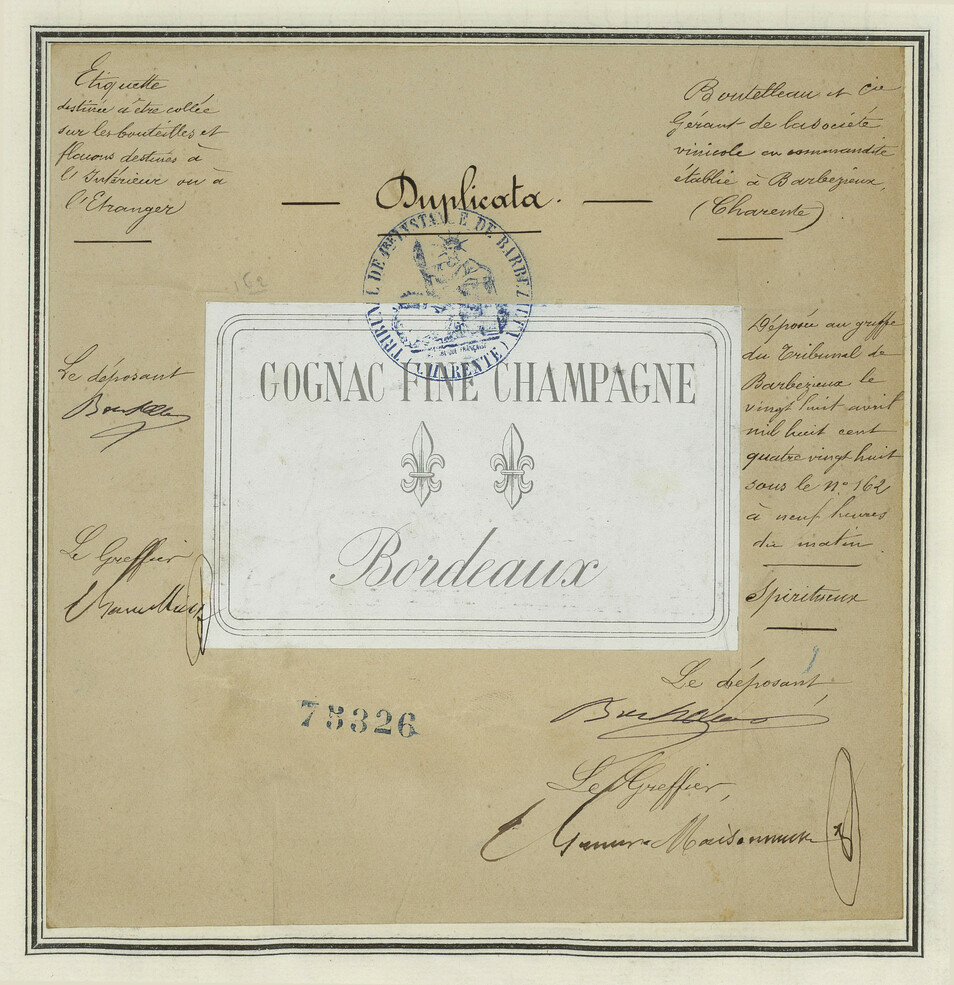 Etiquette
destinée à être collée
sur les bouteilles et
flacons destinés à
l'Intérieur ou à
l'Etranger
Duplicata.
Boutelleau et Cie
Gérant de la société
vinicole en commandite
établie à Barbezieux,
(Charente)
TRIBUNAL DE 1ERE INSTANCE DE BARBEZIEUX
(CHARENTE)
162
GOGNAC FINE CHAMPAGNE
Bordeaux
Le déposant
Le Greffier
Déposée au greffe
du Tribunal de
Barbezieux le
vingt huit avril
mil huit cent
quatre vingt huit
sous le No. 162
à neuf heures
du matin.
Spiritueux
75326
Le déposant,
Le Greffier,
Maisonneuve